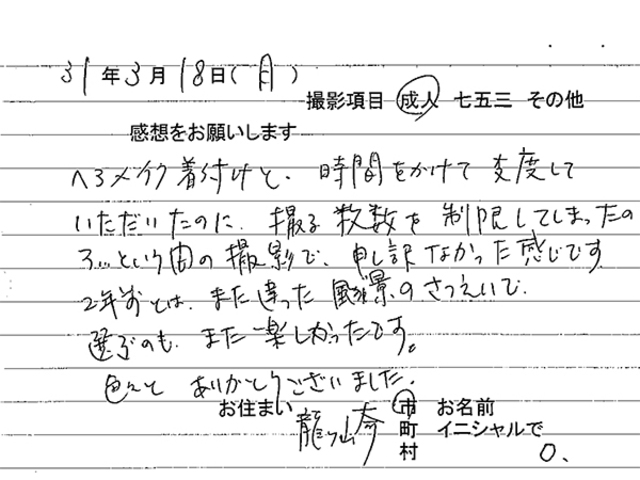 31年3月18日(月)
撮影項目 成人 七五三 その他
感想をお願いします
ヘアメイク着付けと、時間をかけて支度して
いただいたのに、撮る枚数を制限してしまったの
で、あっという間の撮影で、申し訳なかった感じです
2年前とは、また違った風景のさつえいで、
選ぶのも、また楽しかったです。
色々と ありがとうございました。
お住まい 龍ヶ崎 市 お名前
町 イニシャルで
村 O.